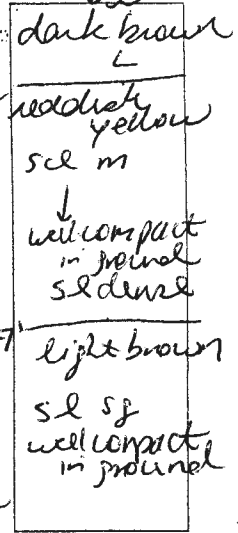 dark brown
L
reddish
yellow
scl m
↓
well compact
in ground
sl dense
7'
light brown
sl sg
well compact
in ground